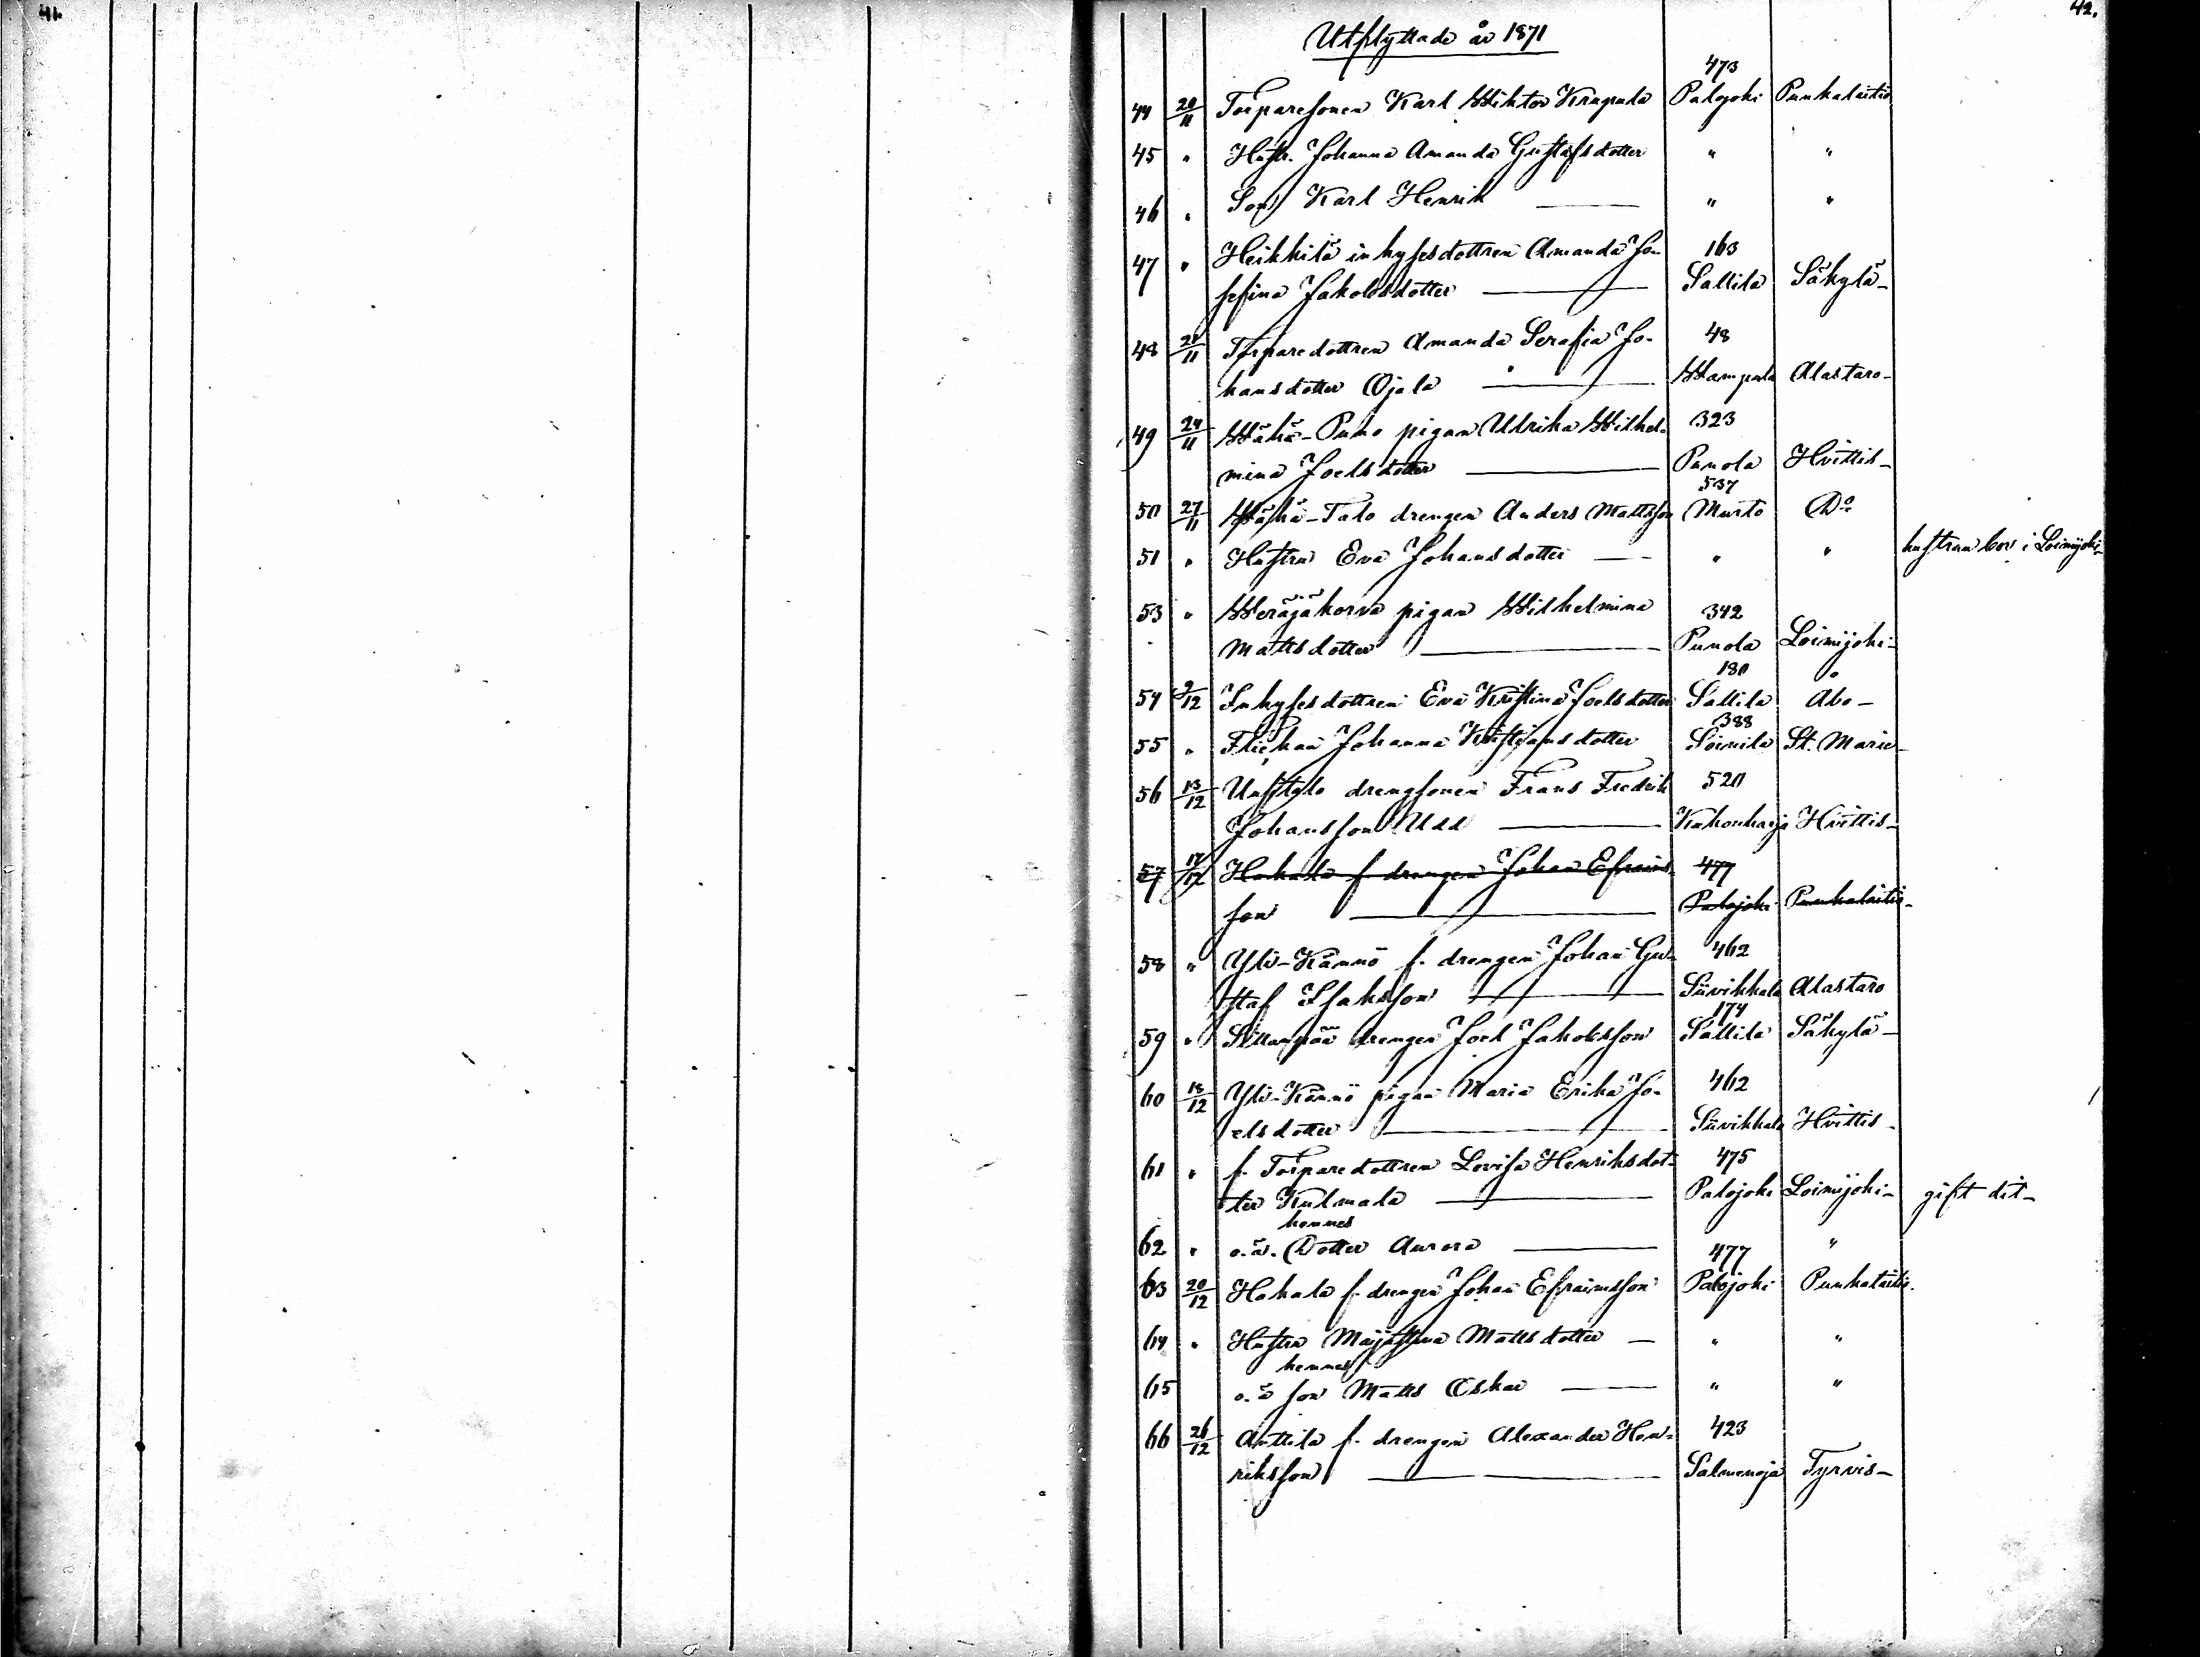 41.
42.
Utflyttade år 1871
473
44 20/11 Torparesonen Karl Wiktor Krapula Palojoki Punkalaitio
45 " Hustr. Johanna Amanda Gustafsdotter " "
46 " Son Karl Henrik " "
47 " Heikkilä inhysesdottren Amanda Jo- 163
sefina Jakobsdotter Sallila Säkylä
48 21/11 Torparedottren Amanda Serafia Jo- 48
hansdotter Ojala Wampula Alastaro
49 24/11 Wähä-Puno pigan Ulrika Wilhel- 323
mina Joelsdotter Punola Hvittis
537
50 27/11 Wähä-Talo drengen Anders Mattsson Murto Do
51 " Hustru Eva Johansdotter " " hustrun bor i Loimijoki
53 " Weräjäkorva pigan Wilhelmina 342
Mattsdotter Punola Loimijoki
180
54 9/12 Inhysesdottren Eva Kristina Joelsdotter Sallila Åbo
388
55 " Flickan Johanna Kristjansdotter Soinila St. Marie
56 13/12 Uusitalo drengsonen Frans Fredrik 520
Johansson Udd Kukonharja Hvittis
57 17/12 Hakala f. drengen Johan Efraims 477
son Palojoki Punkalaitio
58 " Yli-Kännö f. drengen Johan Gu- 462
staf Isaksson Suvikkala Alastaro
174
59 " Sillanpää drengen Joel Jakobsson Sallila Säkylä
60 18/12 Yli-Kännö pigan Maria Erika Jo- 462
elsdotter Suvikkala Hvittis
61 " f. Torparedottren Lovisa Henriksdot- 475
ter Kulmala Palojoki Loimijoki gift dit
hennes
62 " o.ä. Dotter Aurora "
477
63 20/12 Hakala f. drengen Johan Efraimsson Palojoki Punkalaitio
64 " Hustru Majastina Mattsdotter " "
hennes
65 o.ä son Matts Oskar " "
66 26/12 Anttila f. drengen Alexander Hen- 423
riksson Salmenoja Tyrvis